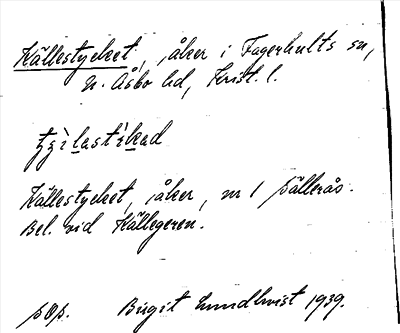 Källestycket, åker i Fagerhults sn,
N. Åsbo hd, Krist. l.
Källestycket, åker, nr 1 Pållerås.
Bel. vid Källegeren.
pOp. Birgit Lundkvist 1939.